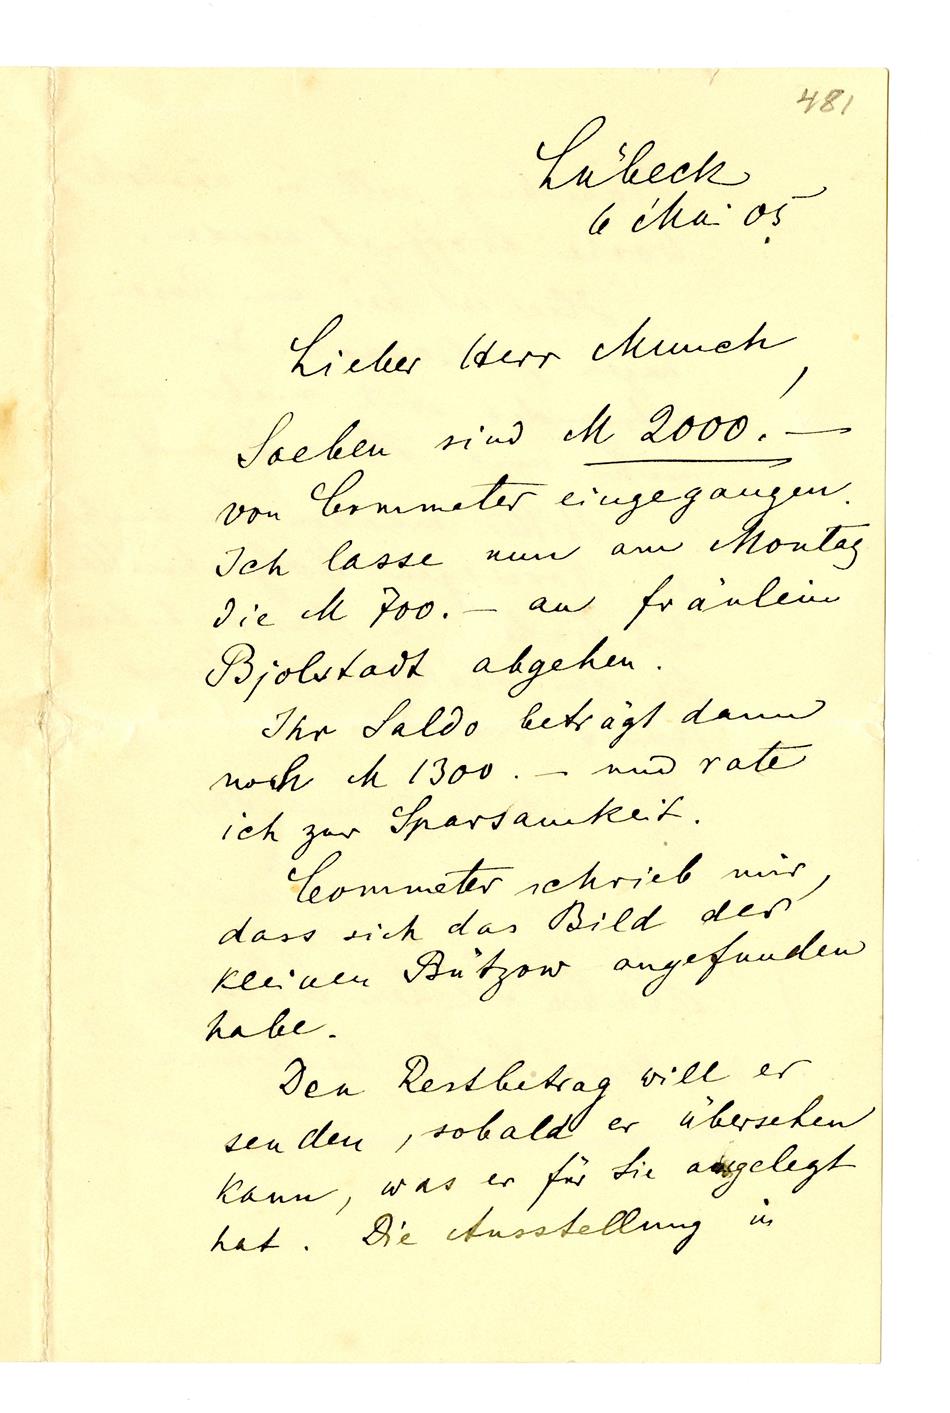 481
Lübeck
6 Mai 05.
Lieber Herr Munch,
Soeben sind M 2000.! —
von Commeter eingegangen.
Ich lasse nun am Montag
die M 700. — an Fräulein
Bjolstadt abgehen.
Ihr Saldo beträgt dann
noch M 1300. — und rate
ich zur Sparsamkeit.
Commeter schrieb mir,
dass sich das Bild der
kleinen Bützow angefunden
habe.
Den Restbetrag will er
senden, sobald er übersehen
kann, was er für Sie angelegt
hat. Die Ausstellung in